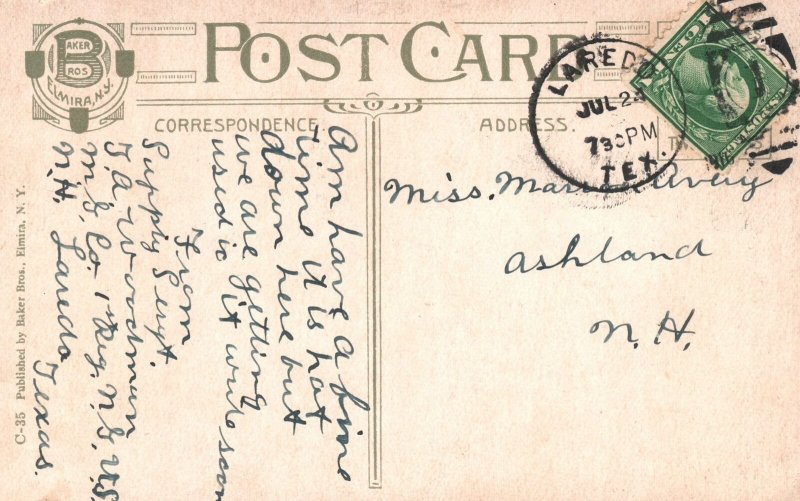 BAKER
BROS
ELMIRA, N.Y.
POST CARD
CORRESPONDENCE
ADDRESS.
LAREDO
JUL 25
730 PM
TEX.
Am have a fine
time it is hot
down here but
we are getting
used to it write soon
From
Supply Sergt.
T. A. Woodman
M. G. Co. 1st Reg. N.G. U.S.
N.H. Laredo Texas.
Miss. Avery
Ashland
N.H.
C-35 Published by Baker Bros., Elmira, N. Y.